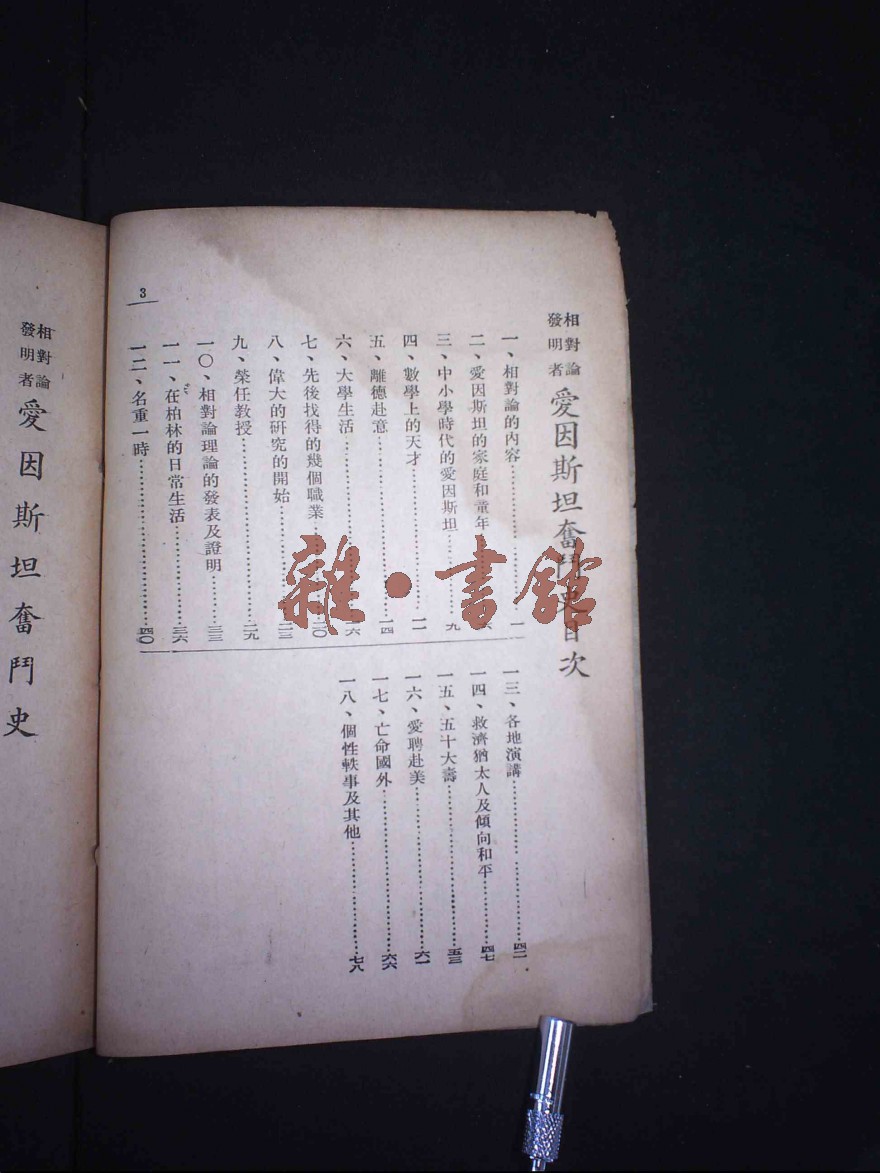 相對論
發明者
愛因斯坦奮鬥史目次
一、相對論的內容……一
二、愛因斯坦的家庭和童年……六
三、中小學時代的愛因斯坦……九
四、數學上的天才……一一
五、離德赴意……一四
六、大學生活……一六
七、先後找得的幾個職業……二〇
八、偉大的研究的開始……二三
九、榮任教授……二九
一〇、相對論理論的發表及證明……三三
一一、在柏林的日常生活……三六
一二、名重一時……四〇
一三、各地演講……四二
一四、救濟猶太人及傾向和平……四七
一五、五十大壽……五三
一六、愛聘赴美……六一
一七、亡命國外……六六
一八、個性軼事及其他……七八
3
相對論
發明者
愛因斯坦奮鬥史
雜·書館